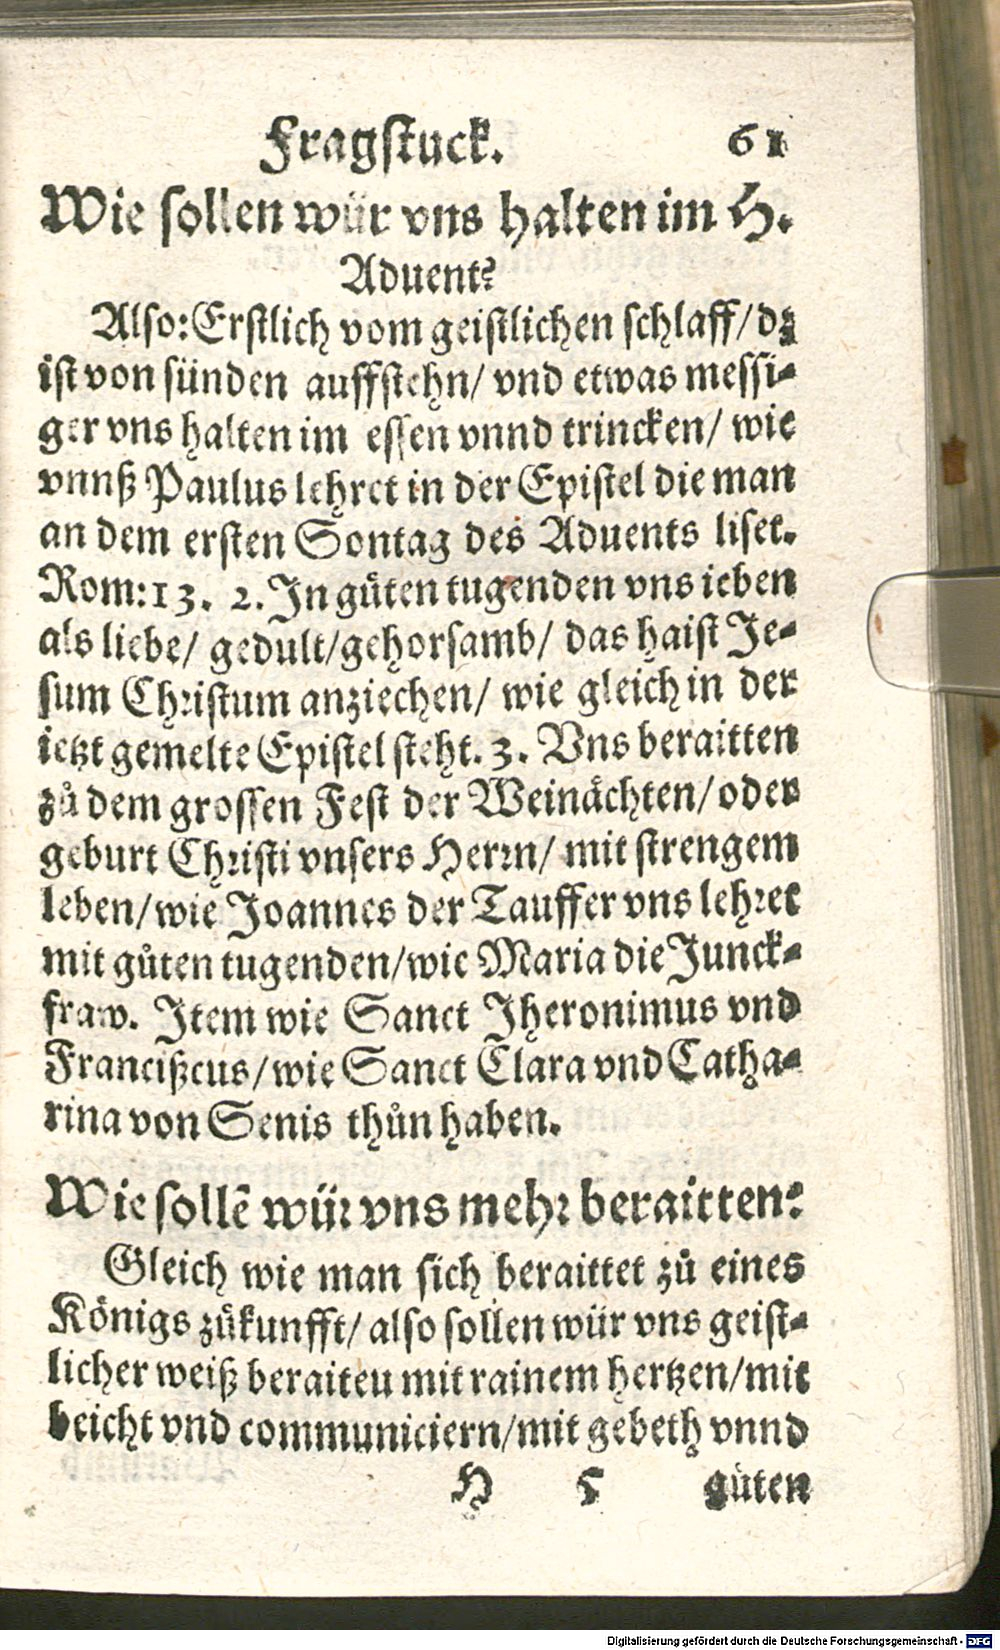 Fragstuck. 61
Wie sollen wür vns halten im H.
Aduent?
Also: Erstlich vom geistlichen schlaff/ dz
ist von sünden auffstehn/ vnd etwas messi-
ger vns halten im essen vnnd trincken/ wie
vnnß Paulus lehret in der Epistel die man
an dem ersten Sontag des Aduents liset.
Rom: 13. 2. In gůten tugenden vns ieben
als liebe/ gedult/ gehorsamb/ das haist Je-
sum Christum anziechen/ wie gleich in der
ietzt gemelte Epistel steht. 3. Vns beraitten
zů dem grossen Fest der Weinächten/ oder
geburt Christi vnsers Herrn/ mit strengem
leben/ wie Joannes der Tauffer vns lehret
mit gůten tugenden/ wie Maria die Junck-
fraw. Item wie Sanct Jheronimus vnd
Francißcus/ wie Sanct Clara vnd Catha-
rina von Senis thůn haben.
Wie sollē wür vns mehr beraitten?
Gleich wie man sich beraittet zů eines
Königs zůkunfft/ also sollen wür vns geist-
licher weiß beraiteu mit rainem hertzen/ mit
beicht vnd communiciern/ mit gebeth vnnd
H 5 gůten
Digitalisierung gefördert durch die Deutsche Forschungsgemeinschaft - DFG